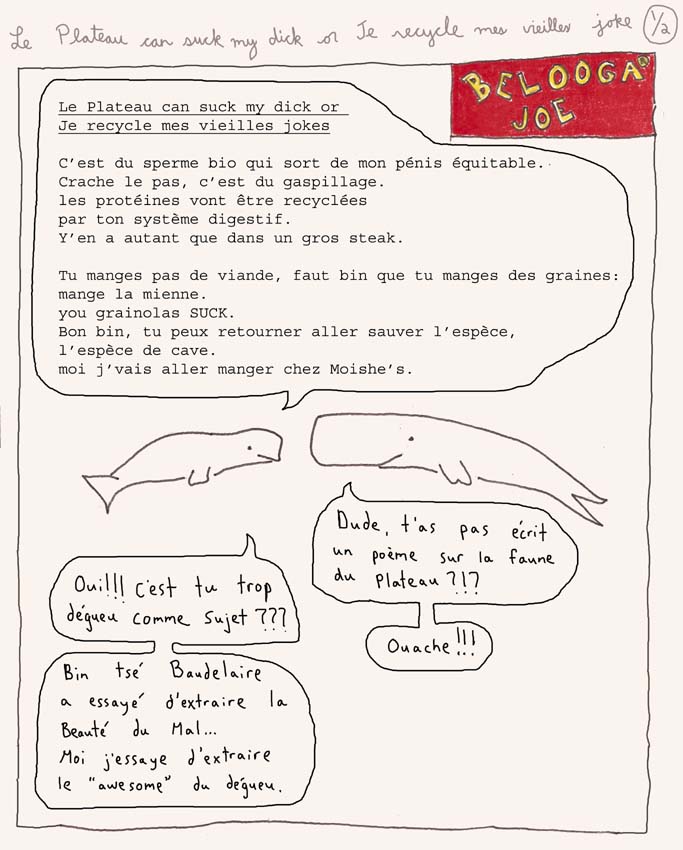 Le Plateau can suck my dick or Je recycle mes vieilles joke 1/2
BELOOGA
JOE
Le Plateau can suck my dick or
Je recycle mes vieilles jokes
C’est du sperme bio qui sort de mon pénis équitable.
Crache le pas, c’est du gaspillage.
les protéines vont être recyclées
par ton système digestif.
Y’en a autant que dans un gros steak.
Tu manges pas de viande, faut bin que tu manges des graines:
mange la mienne.
you grainolas SUCK.
Bon bin, tu peux retourner aller sauver l’espèce,
l’espèce de cave.
moi j’vais aller manger chez Moishe’s.
Dude, t'as pas écrit
un poème sur la faune
du Plateau ?!?
Ouache!!!
Oui!!! c'est tu trop
dégueu comme sujet ???
Bin tsé Baudelaire
a essayé d'extraire la
Beauté du Mal...
Moi j'essaye d'extraire
le "awesome" du dégueu.